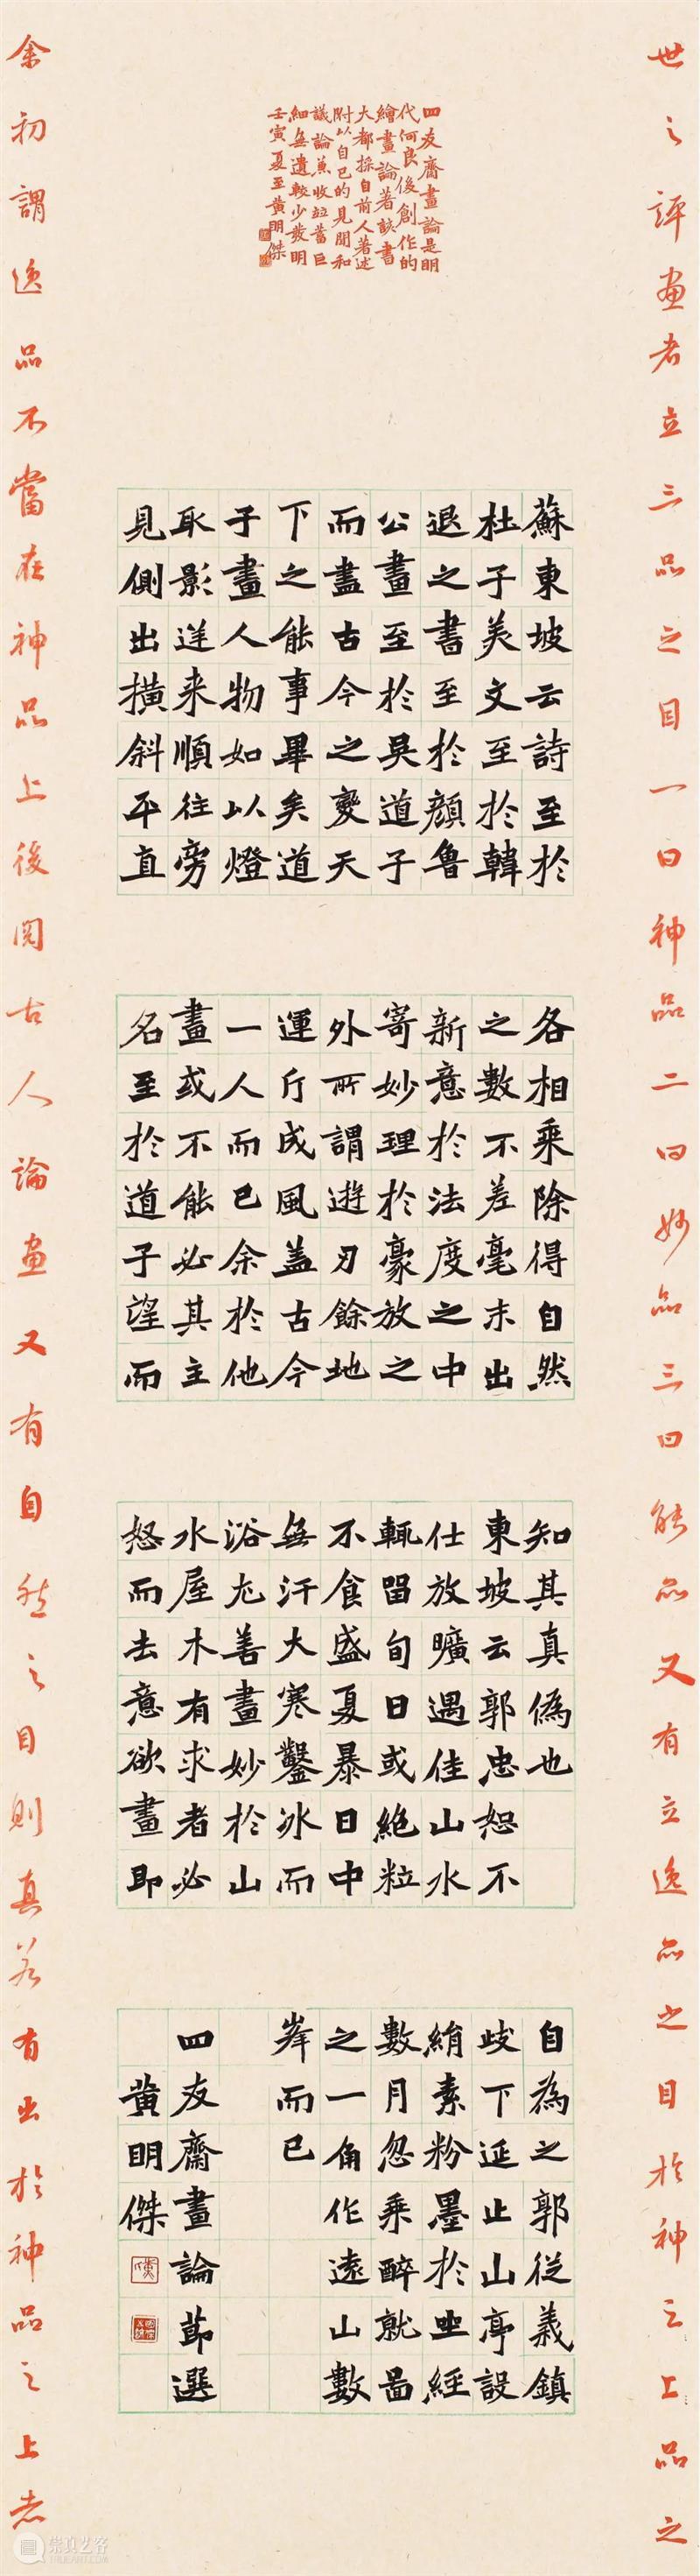 世之評画者立三品之目一曰神品二曰妙品三曰能品又有立逸品之目於神之上品之
四友齋畫論是明
代何良俊創作的
繪畫論著該書
大都採自前人著述
附以自己的見聞和
議論兼收並蓄巨
細無遺較少發明
壬寅夏至黄明傑
蘇東坡云詩至於
杜子美文至於韓
退之書至於顏魯
公畫至於吳道子
而盡古今之變天
下之能事畢矣道
子畫人物如以燈
取影逆来順往旁
見側出橫斜平直
各相乘除得自然
之數不差毫末出
新意於法度之中
寄妙理於豪放之
外所謂遊刃餘地
運斤成風蓋古今
一人而已余於他
畫或不能必其主
名至於道子望而
知其真偽也
東坡云郭忠恕不
仕放曠遇佳山水
輒留旬日或絶粒
不食盛夏暴日中
無汗大寒鑿冰而
浴尤善畫妙於山
水屋木有求者必
怒而去意欲畫即
自為之郭從義鎮
歧下延止山亭設
絹素粉墨於坐經
數月忽乘醉就圖
之一角作遠山數
峯而已
四友齋畫論節選
黄明傑
余初謂逸品不當在神品上後閱古人論画又有自然之目則真若有出於神品之上者
崇真艺客